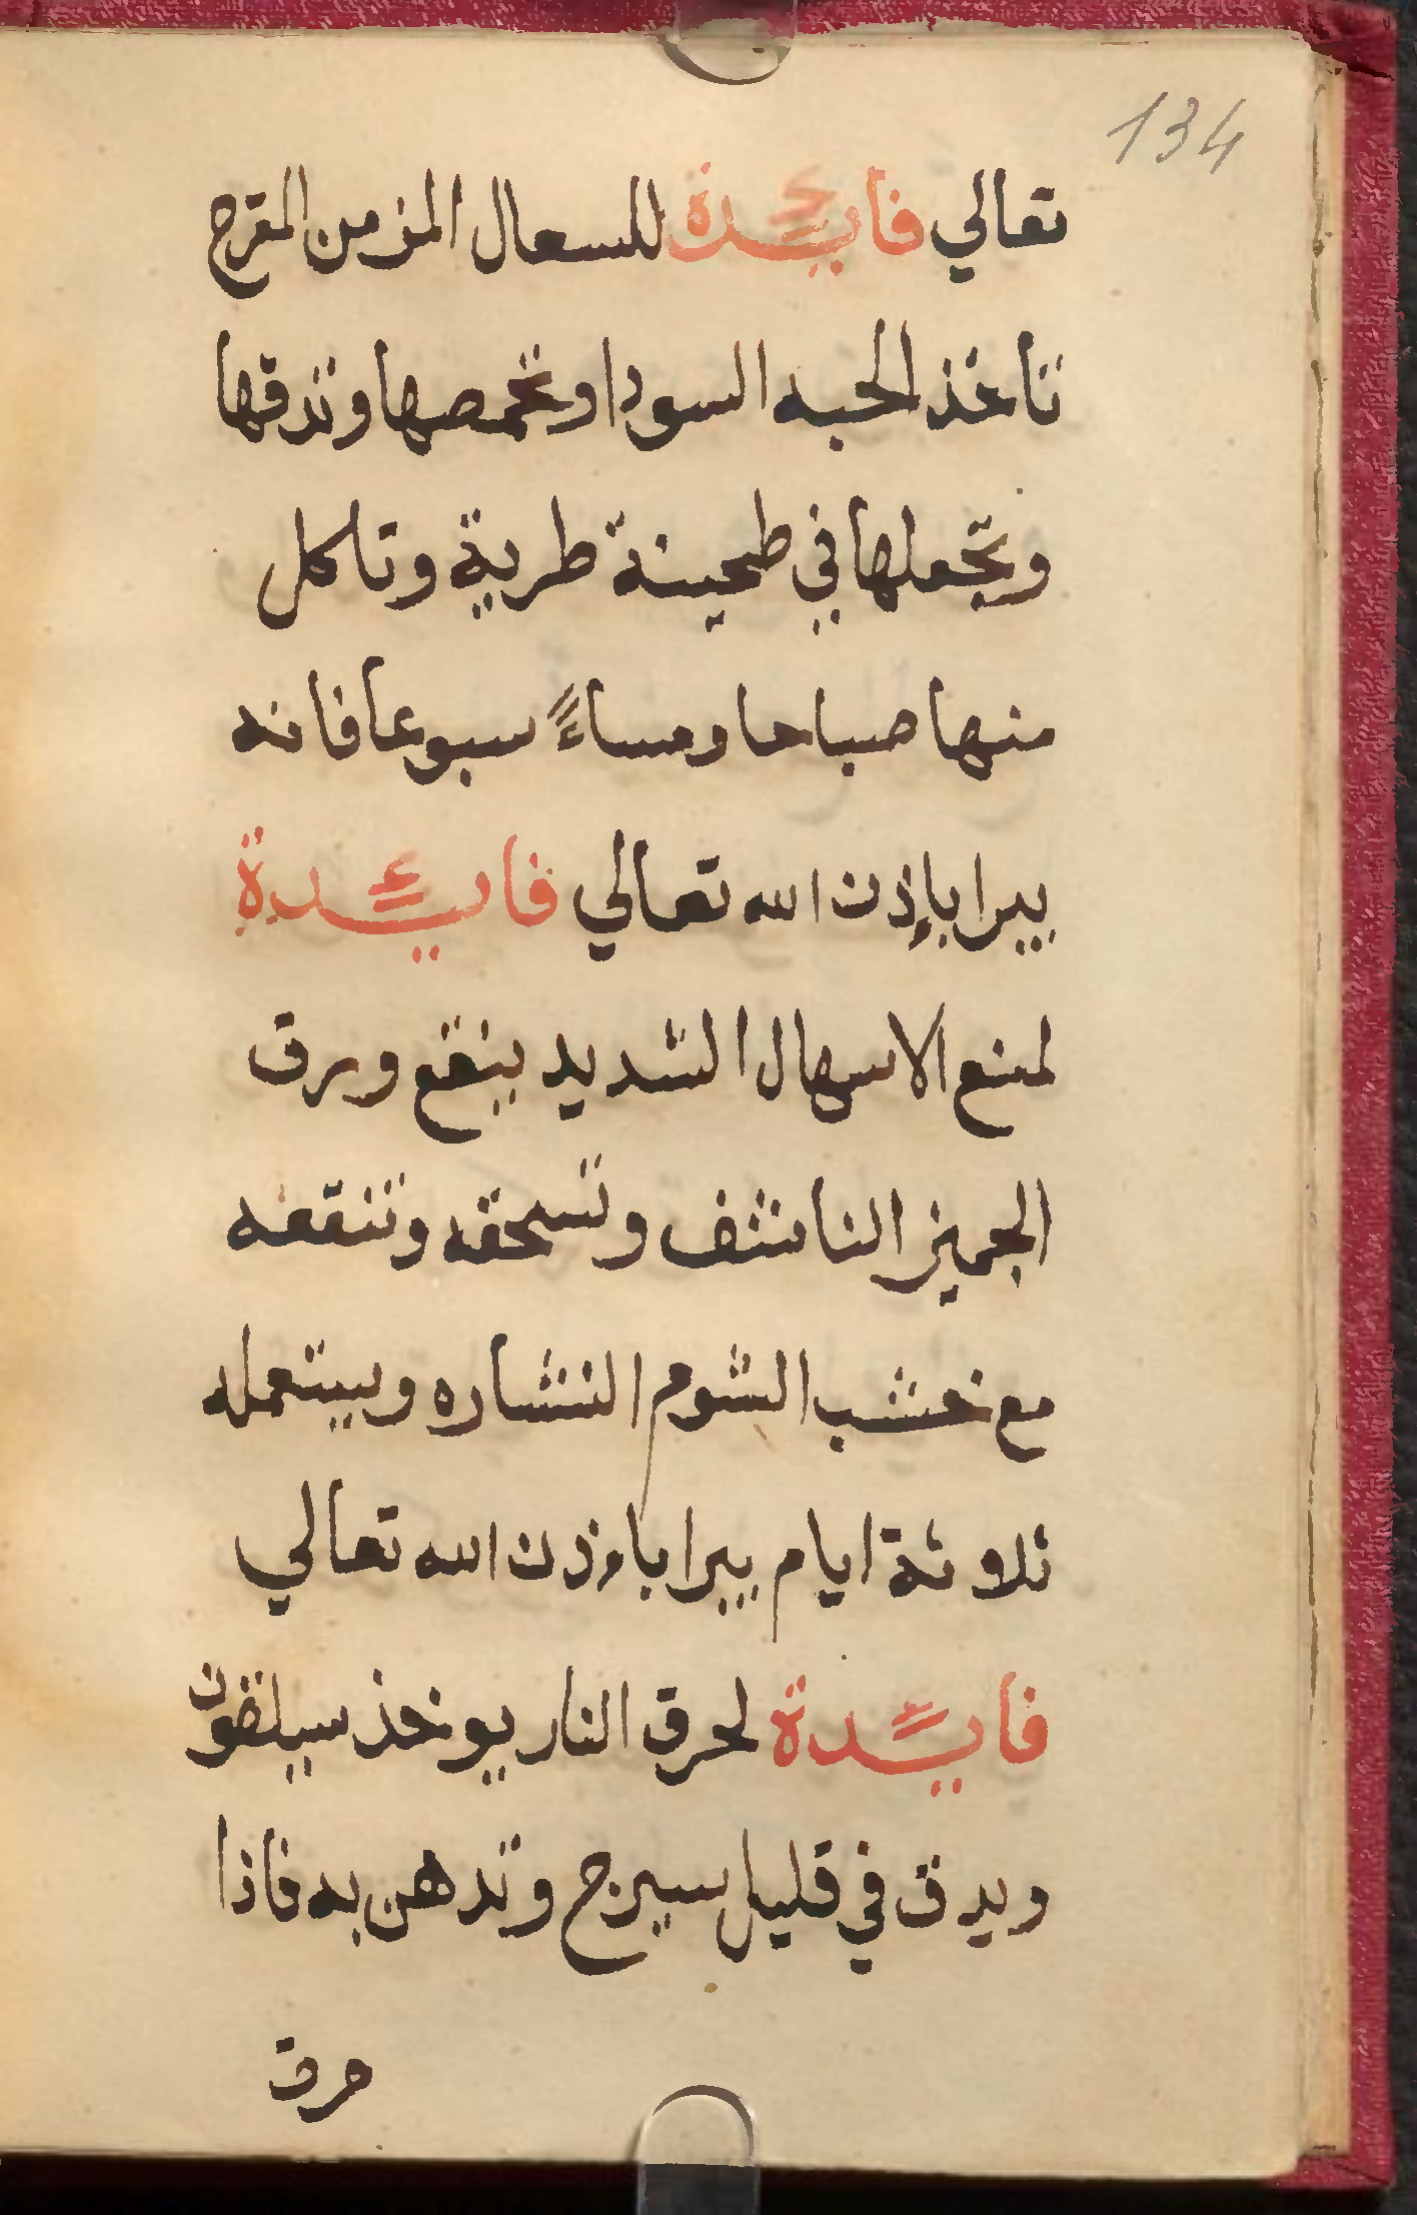 134
تعالي فايدة للسعال المزمن المقرح
تاخذ الحبه السودا وتحمصها وتدقها
وتجعلها في طحينة طرية وتاكل
منها صباحا ومساءً سبوعا فانه
يبرا بإذن الله تعالي فايدة
لمنع الاسهال الشديد ينفع ورق
الجميز الناشف وتسحقه وتنقعه
مع خشب الشوم النشاره ويستعمله
ثلاوثة ايام يبرا باءذن الله تعالي
فايدة لحرق النار يوخذ سيلقون
ويدق في قليل سيرج وتدهن به فاذا
حرق